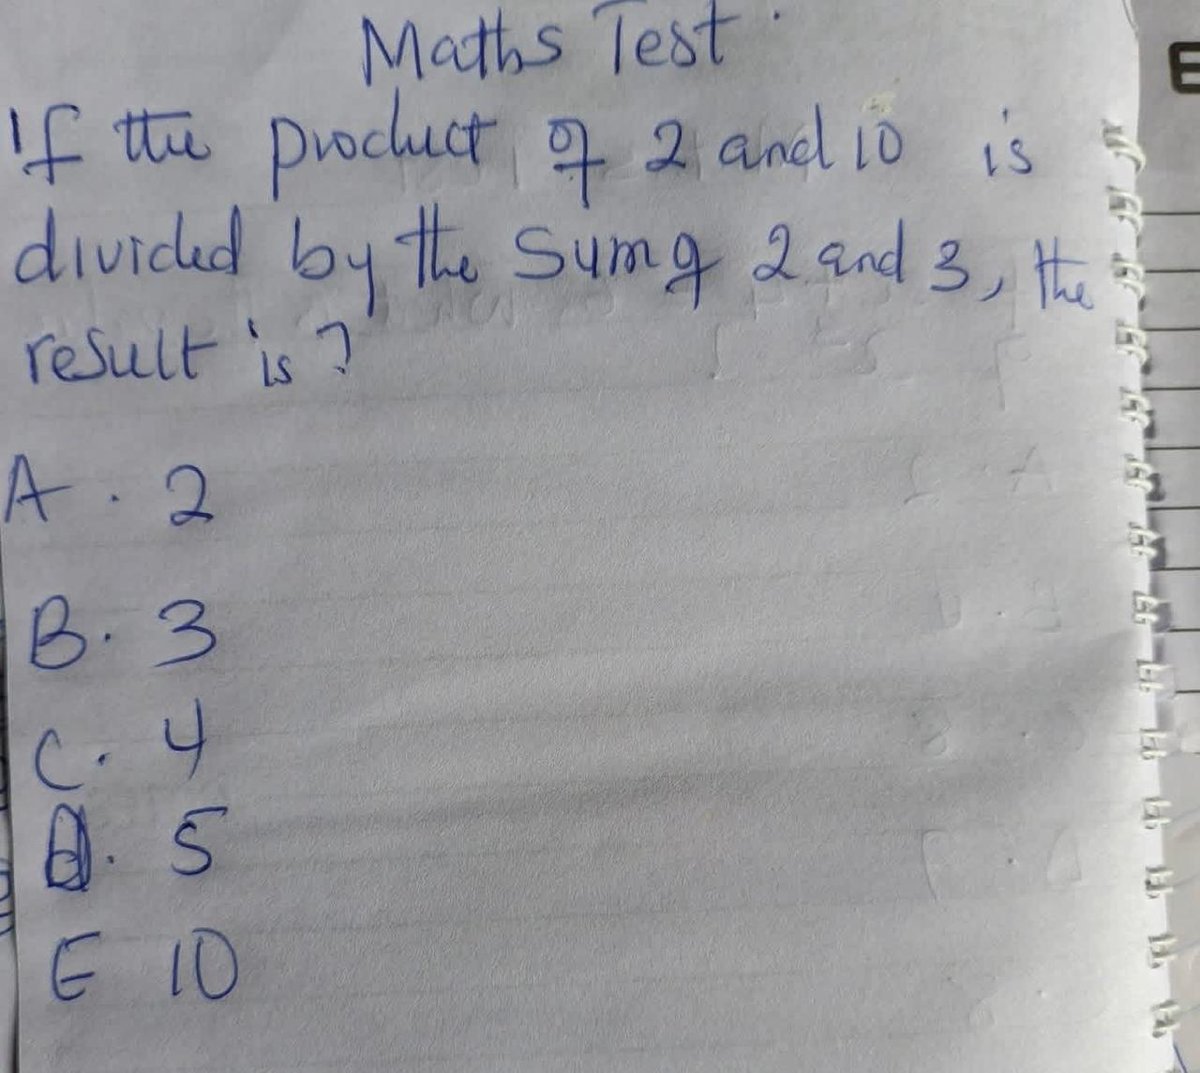 Maths Test
If the product of 2 and 10 is
divided by the Sum of 2 and 3, the
result is?
A. 2
B. 3
C. 4
D. 5
E 10
E